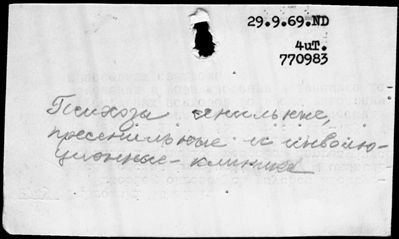 29.9.69.ND
4uT.
770983
Психозы сенильные,
пресенильные и инволю-
ционные - клиника